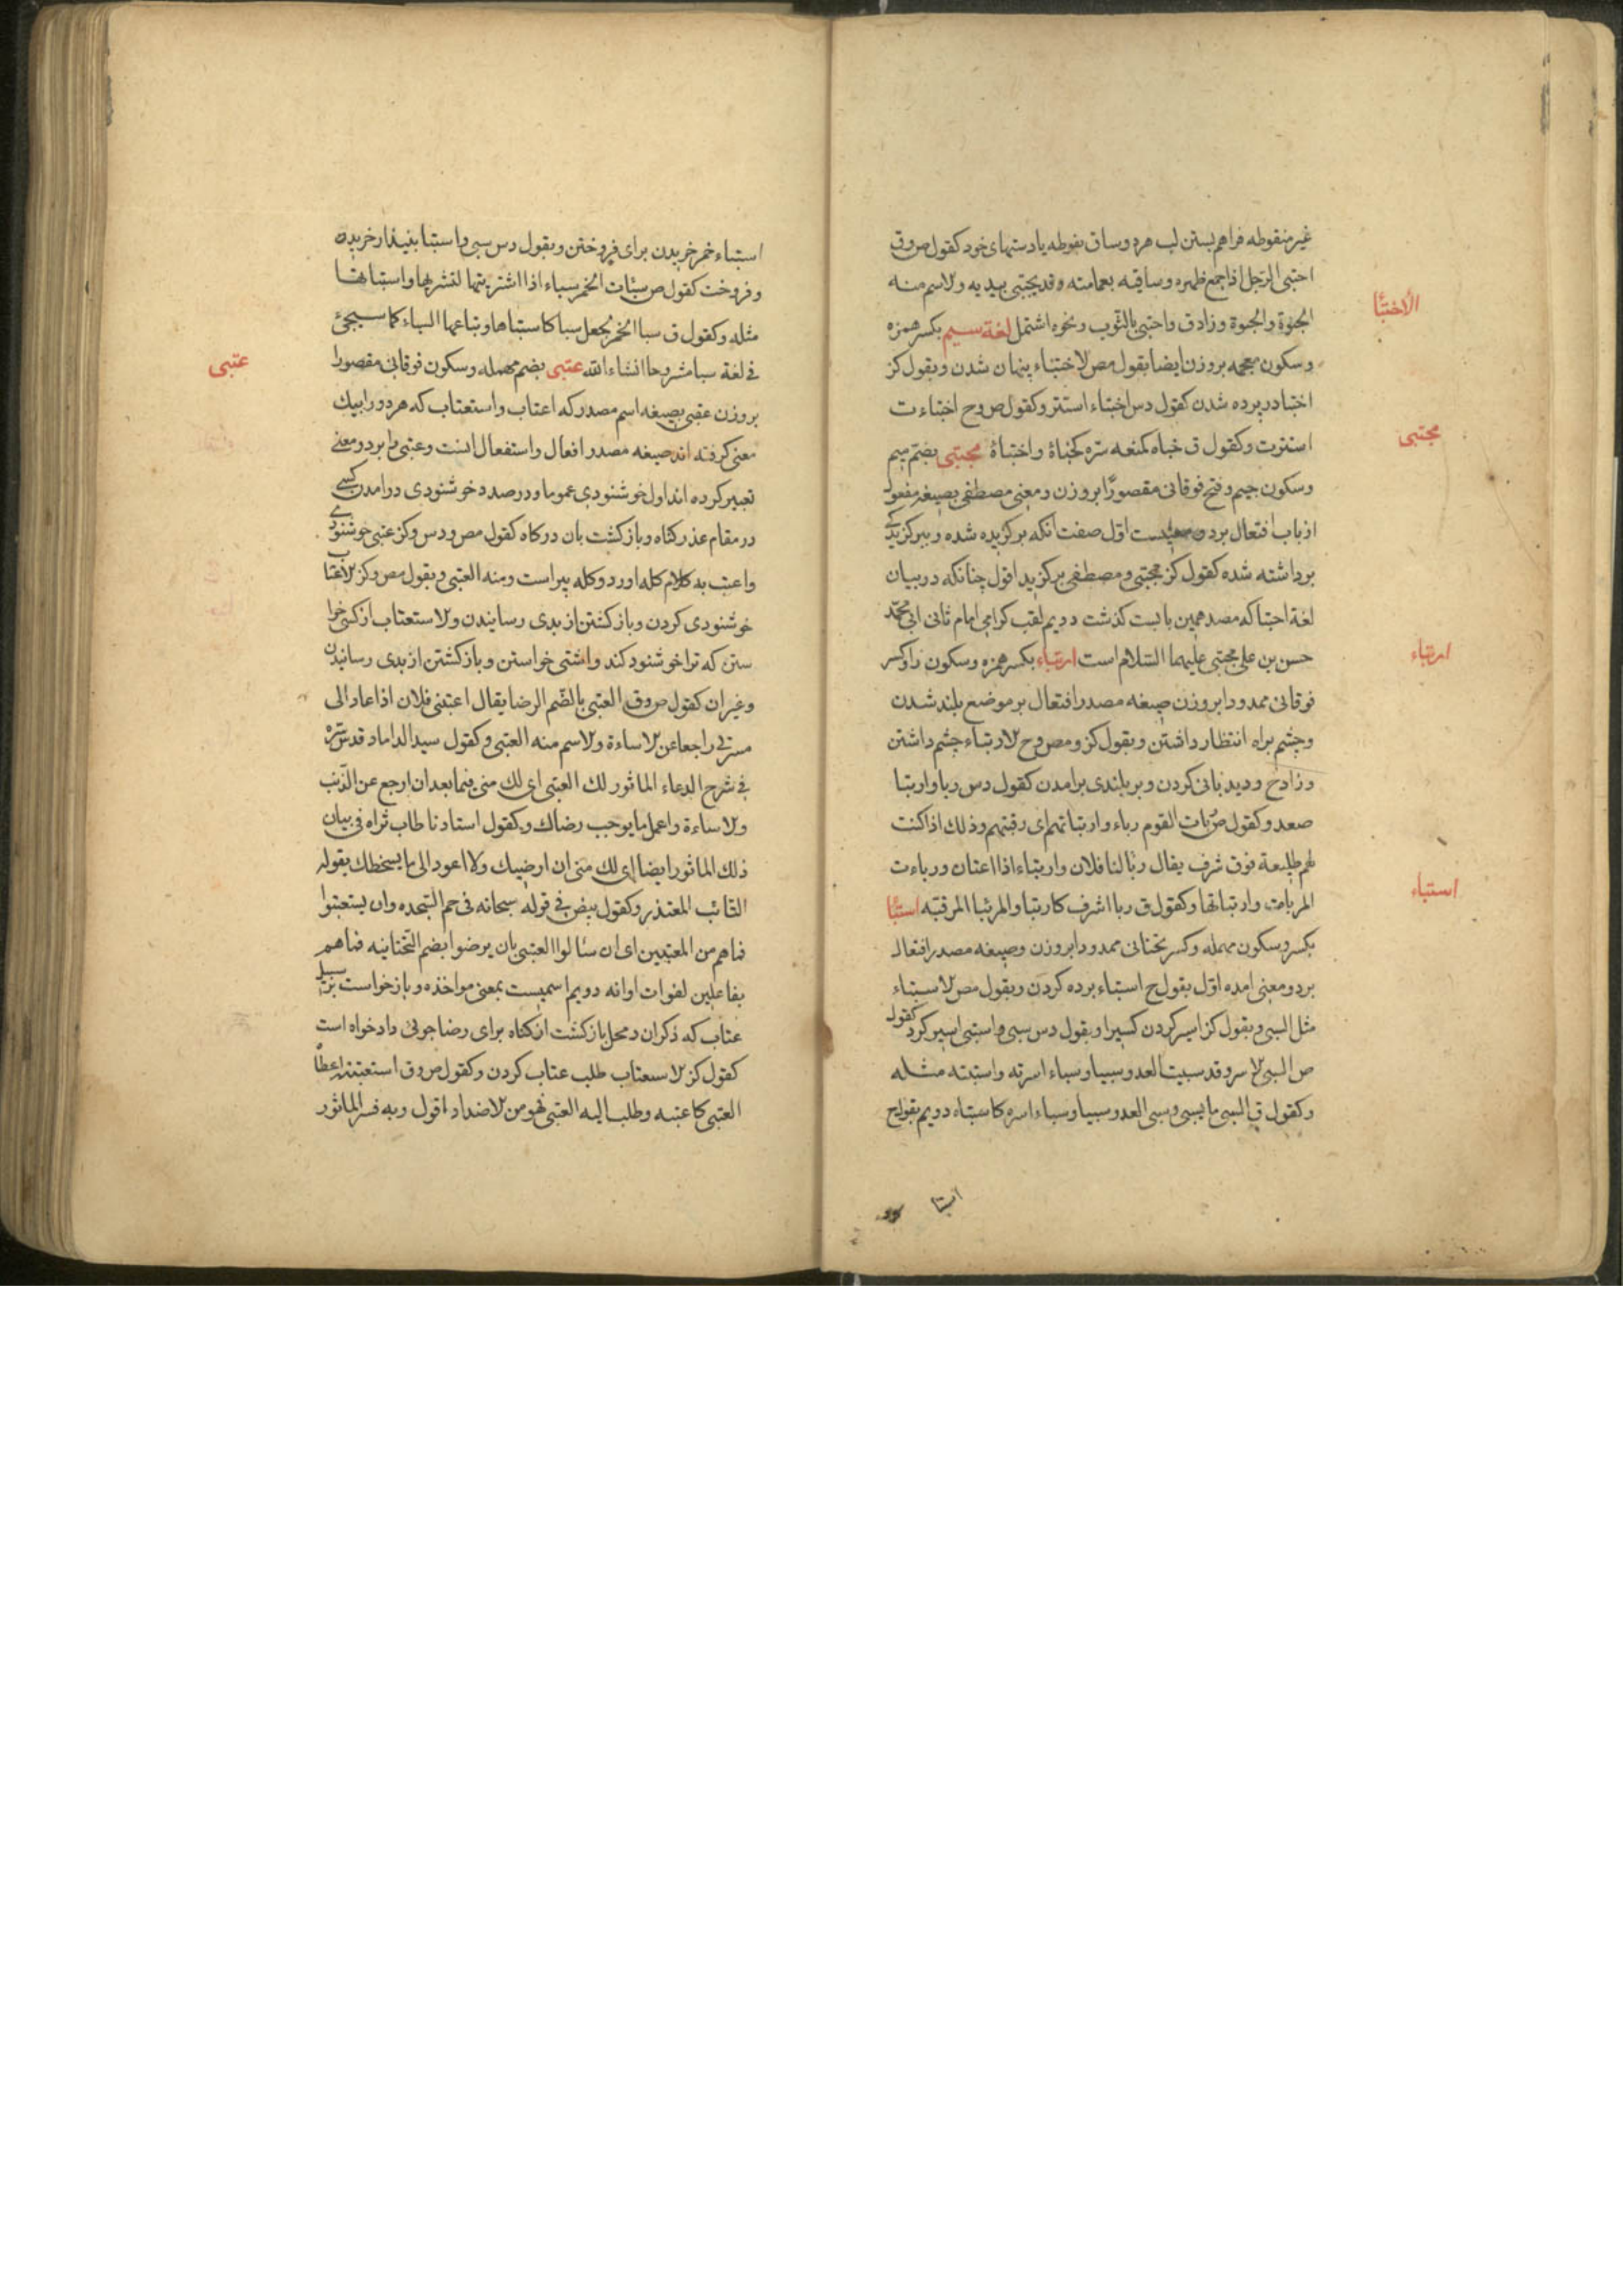 غیر منقوطه فراهم بستن لب هر دو ساق بفوطه یا دستهای خود کقول ص و ق
احتبی الرجل اذا جمع ظهره و ساقیه بعمامته و قد یحتبی بیدیه و الاسم منه
الحبوة و الحبوة و زاد ق و احتبی بالثوب و نحوه اشتمل لغة سیم بکسر همزه
الاختبأ
و سکون معجمه بر وزن ایضا بقول مص الاختباء پنهان شدن و بقول کز
اختبا در پرده شدن کقول دس اختباء استتر و کقول ص و ح اختباءت
استترت و کقول ق خباه کمنعه ستره کخباة و اختباة مجتبی بضم میم
مجتبی
و سکون جیم و فتح فوقانی مقصورا بر وزن و معنی مصطفی بصیغه مفعول
از باب افتعال بر دو معنیست اول صفت انکه برکزیده شده و ببرکزیدکی
برداشته شده کقول کز مجتبی و مصطفی برکزید اقول چنانکه در بیان
لغة اجتبا که مصد همین بابست کذشت دویم لقب کرامی امام ثانی ابی محمد
حسن بن علی مجتبی علیهما السلام است ارتباء بکسر همزه و سکون را و کسر
ارتباء
فوقانی ممدودا بر وزن صیغه مصدر افتعال بر موضع بلند شدن
و چشم براه انتظار داشتن و بقول کز و مص و ح الارتباء چشم داشتن
و زاد ح و دیدبانی کردن و بر بلندی برامدن کقول دس ربا و ارتبا
صعد و کقول ص ربات القوم رباء و ارتباتهم ای رقبتهم و ذلک اذا کنت
لهم طلیعة فوق شرف یقال ربا لنا فلان و ارتباء اذا اعتان و رباءت
المرباة و ارتباتها و کقول ق ربا اشرف کارتبا و المربا المرقبة استبأ
استباء
بکسر و سکون مهمله و کسر تحتانی ممدودا بر وزن و صیغه مصدر افتعال
بر دو معنی امده اول بقول ح استباء برده کردن و بقول مص الاستباء
مثل السبی و بقول کز اسیر کردن کسیرا و بقول دس سبی و استبی اسیر کرد کقول
ص السبی الاسر و قد سبیت العدو سبیا و سباء اسرته و استبته مثله
و کقول ق السبی ما یسبی و سبی العدو سبیا و سباء اسره کاستباه دویم بقول ح
استبا
استباء خمر خریدن برای فروختن و بقول دس سبی و استبا بنیذ از خریدن
و فروخت کقول ص سبات الخمر سباء اذا اشتریتها لتشربها و استباتها
مثله و کقول ق سبا الخمر کجعل سبا کاستباها و بتاعها السباء کما سیجیء
فی لغة سبا مشروحا انشاء الله عتبی بضم مهمله و سکون فوقانی مقصورا
عتبی
بر وزن عقبی بصیغه اسم مصدر که اعتاب و استعتاب که هر دو را بیک
معنی کرفته اند صیغه مصدر افعال و استفعال انست و عتبی را بر دو معنی
تعبیر کرده اند اول خوشنودی عموما و در صدد خوشنودی درامدن کسی
در مقام عذر کناه و بازکشت بان درکاه کقول مص و دس و کز عتبی خوشنودی
و اعتب به کلام کله اورد و کله پیراست و منه العتبی و بقول مص و کز الاعتاب
خوشنودی کردن و بازکشتن از بدی رسانیدن و الاستعتاب از کسی خوا
ستن که ترا خوشنود کند و اشتی خواستن و بازکشتن از بدی رسانیدن
و غیر ان کقول ص و ق العتبی بالضم الرضا یقال اعتبنی فلان اذا عاد الی
مسرتی راجعا عن الاساءة و الاسم منه العتبی و کقول سید الداماد قدس سره
فی شرح الدعاء الماثور لک العتبی ای لک منی فیما بعد ان ارجع عن الذنب
و الاساءة و اعمل ما یوجب رضاک و کقول استادنا طاب ثراه فی بیان
ذلک الماثور ایضا ای لک منی ان ارضیک و لا اعود الی ما یسخطک بقوله
التائب المعتذر و کقول بیض فی قوله سبحانه فی حم السجده و ان یستعتبوا
فما هم من المعتبین ای ان سئالوا العتبی بان یرضوا بضم التحتانیه فما هم
بفاعلین لفوات اوانه دویم اسمیست بمعنی مواخذه و بازخواست بر سبیل
عتاب که ذکر ان در محل بازکشت از کناه برای رضاجوئی دادخواه است
کقول کز الاستعتاب طلب عتاب کردن و کقول ص و ق استعتبته اعطا
العتبی کاعتبه و طلب الیه العتبی فهو من الاضداد اقول و به فسر الماثور